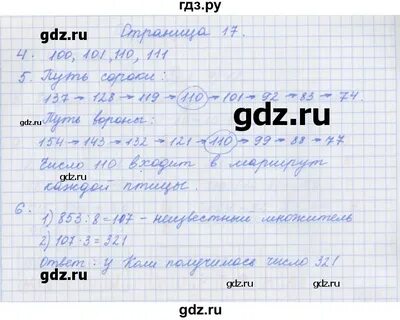 Страница 17.
4. 100, 101, 110, 111
5. Путь сороки:
137 → 128 → 119 → 110 → 101 → 92 → 83 → 74.
Путь вороны:
154 → 143 → 132 → 121 → 110 → 99 → 88 → 77
Число 110 входит в маршрут
каждой птицы.
6.
1) 853 : 8 = 107 - неизвестный множитель
2) 107 · 3 = 321
Ответ: у Коли получилось число 321
gdz.ru
gdz.ru
gdz.ru
gdz.ru